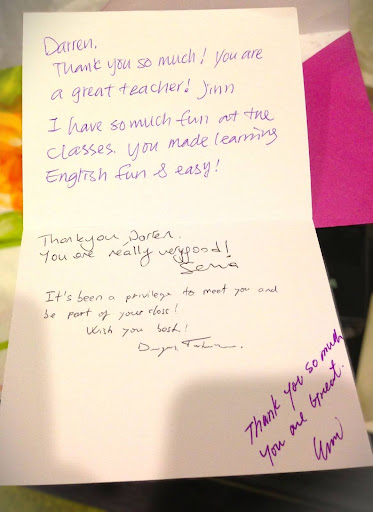 Darren,
Thank you so much! You are
a great teacher! Jinn
I have so much fun at the
classes. You made learning
English fun & easy!
Thankyou Darren.
You are really verygood!
It's been a privilege to meet you and
be part of your class!
Wish you best!
Thank you so much
you are great.